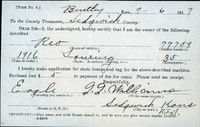 (Form No. 6.) Bentley Kan. 7-6 1917
To the County Treasurer, Sedgwick County:
DEAR SIR—I, the undersigned, hereby certify that I am the owner of the following
described
Reo 77757
1916 Touring 35
I hereby make application for motor license tag for the above described machine.
Enclosed find $ 5 in payment of fee for same. Please send me receipt.
Eagle
Sedgwick Kans